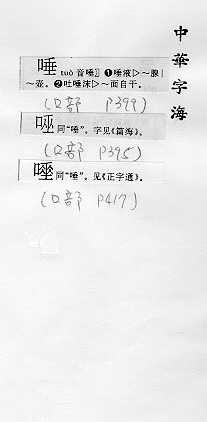 中華字海
唾 tuò 音唾〗❶唾液▷~腺|
~壶。❷吐唾沫▷~面自干。
(口部 P399)
同“唾”。字见《篇海》。
(口部 P395)
同“唾”。见《正字通》。
(口部 P417)